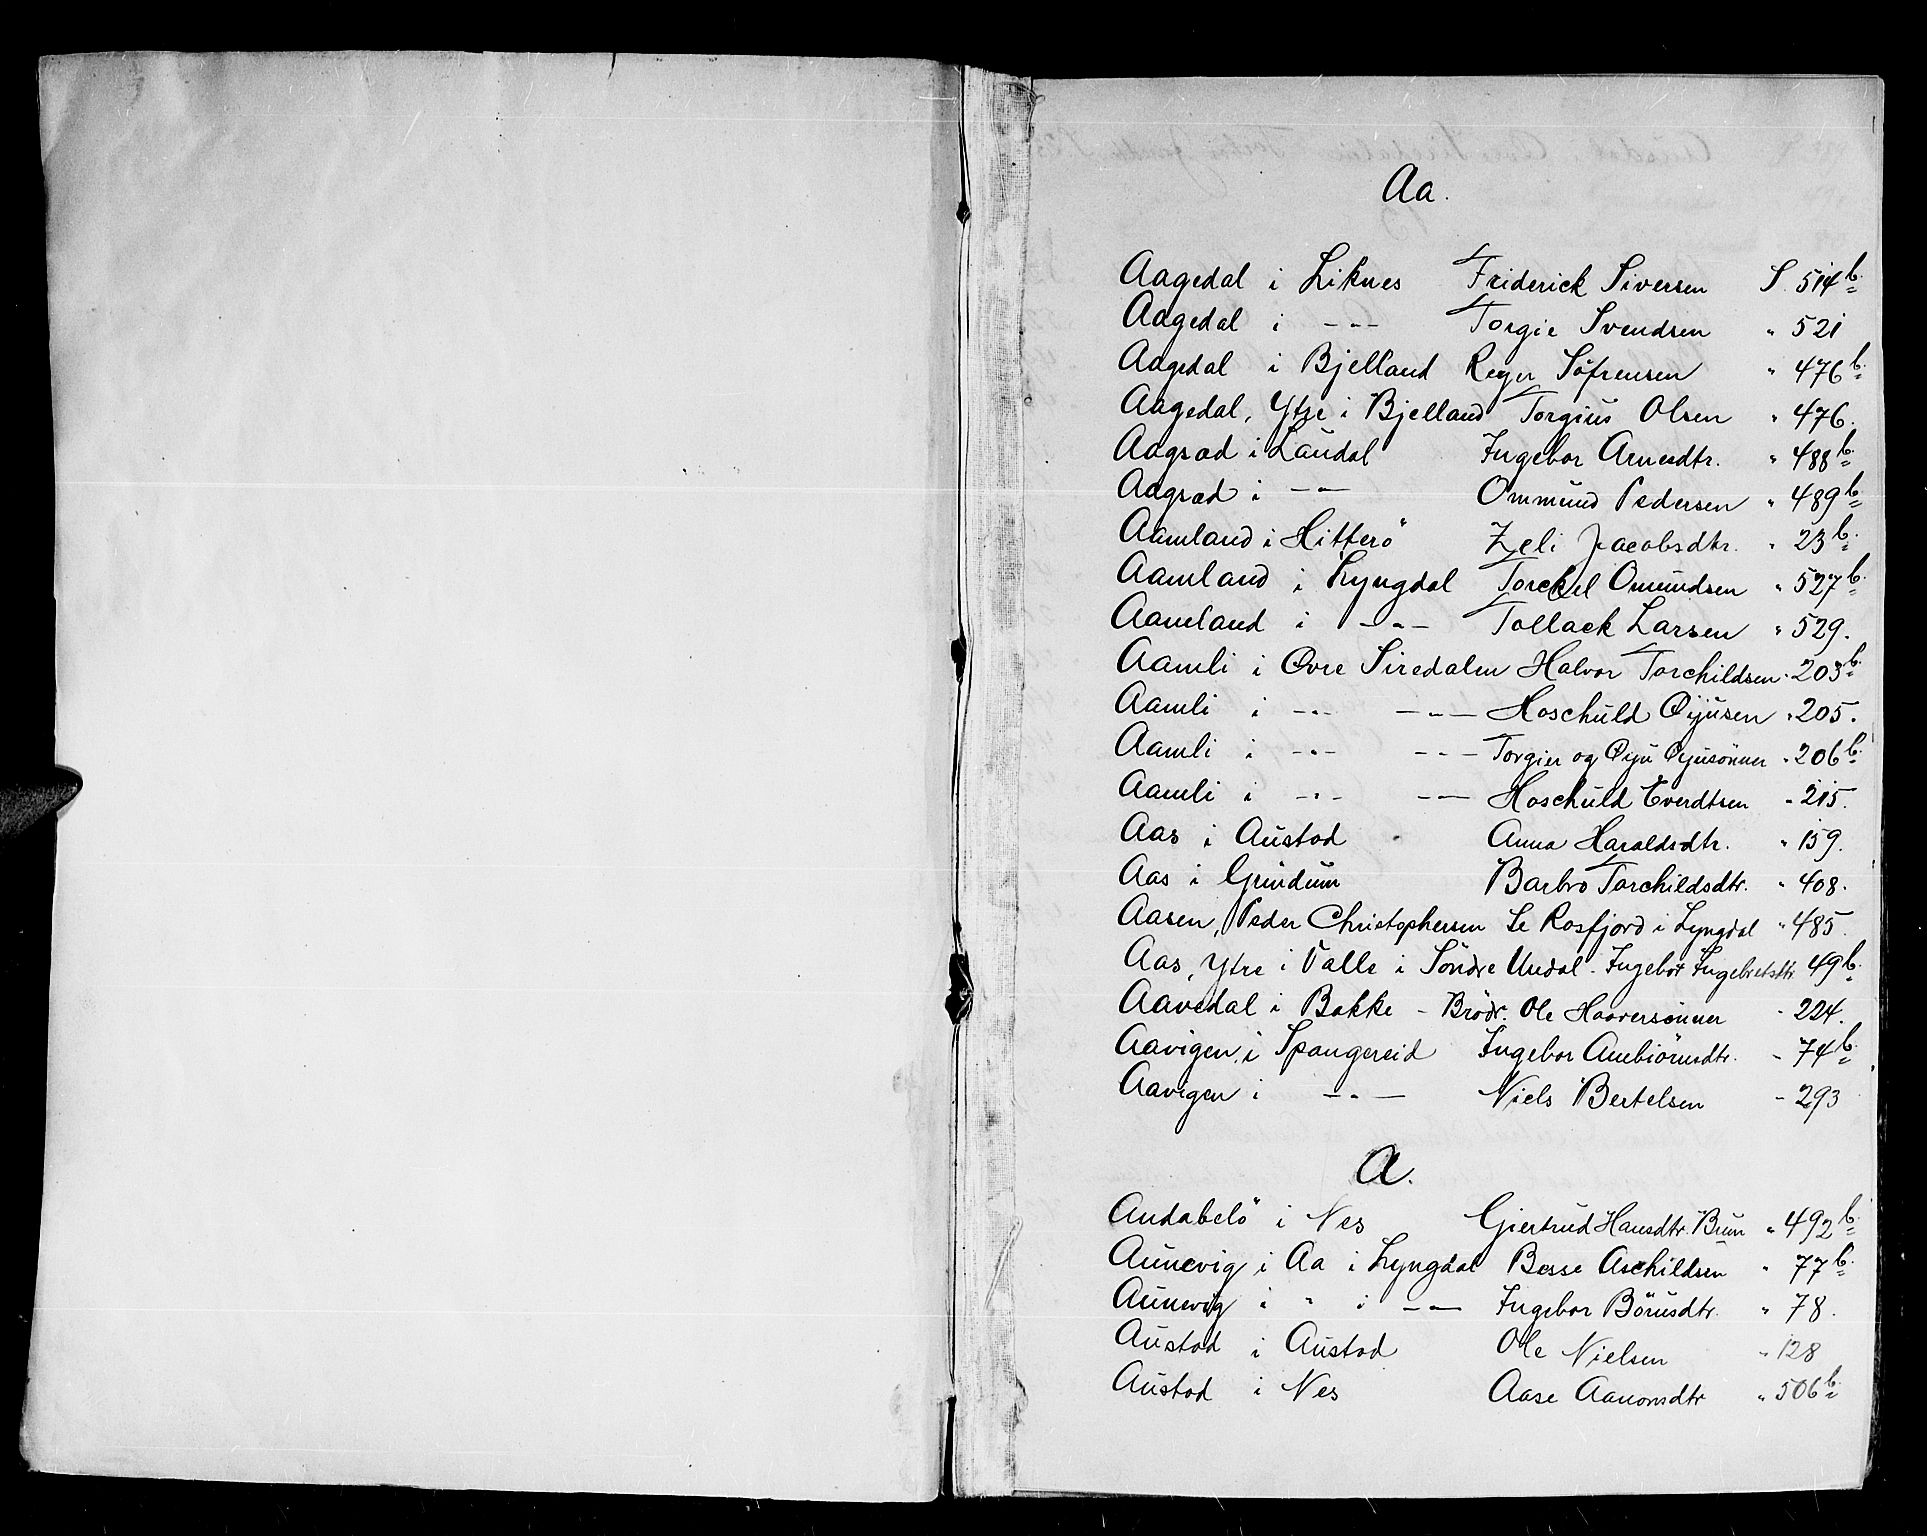 Aa.
Aagedal i Liknes Friderick Siversen S. 514 b.
Aagedal i -"- Torgie Svendsen " 521
Aagedal i Bjelland Reyer Söfrensen " 476 b.
Aagedal, Ytre i Bjelland Torgius Olsen " 476.
Aagsad i Laudal Ingebor Arnesdtr. " 488 b.
Aagsad i -"- Ommund Pedersen " 489 b.
Aamland i Hitterö Zeli Jacobsdtr. " 23 b.
Aamland i Lyngdal Torckel Omundsen " 527 b.
Aamland i -"- Tollack Larsen " 529.
Aamli i Øvre Siredalen Halvor Torchildsen " 203 b.
Aamli i -"- -"- Hoschuld Øijusen " 205.
Aamli i -"- -"- Torgier og Øyu Øyusönner " 206 b.
Aamli i -"- -"- Hoschuld Everdtsen " 215.
Aas i Austad Anna Haraldsdtr. " 159.
Aas i Grindum Barbro Torchildsdtr. " 408.
Aasen, Peder Christophersen Se Rosfjord i Lyngdal " 485.
Aas, Ytre i Valle i Söndre Undal - Ingebor Ingebretsdtr 49 b.
Aavedal i Bakke - Brödr. Ole Haaversönner - 224.
Aavigen i Spangereid Ingebor Arnbiörnsdtr. - 74 b.
Aavigen i -"- Niels Bertelsen - 293
A.
Andabelö i Nes Giertrud Hansdtr. Brun " 492 b.
Aunevig i Aa i Lyngdal Besse Aschildsen " 77 b.
Aunevig i " i -"- Ingebor Börusdtr. " 78.
Austad i Austad Ole Nielsen " 128
Austad i Nes Aase Aanonsdtr " 506 b.